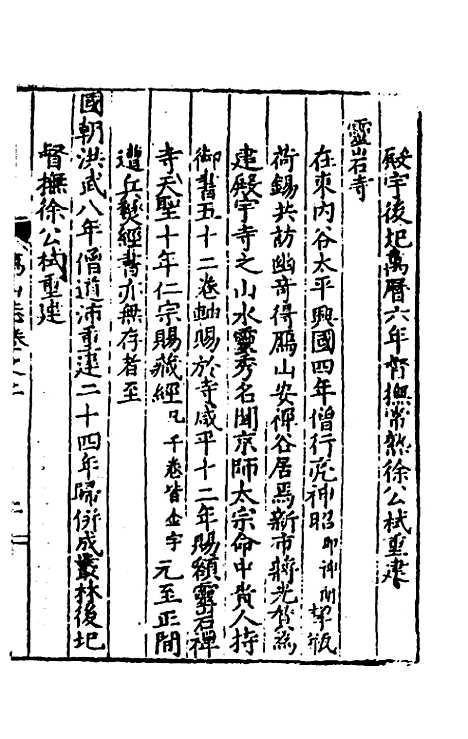 殿宇後圯萬曆六年督撫常熟徐公栻重建
靈岩寺
在東內谷太平興國四年僧行亮神昭即神閒挈瓶
荷錫共訪幽奇得鴈山安禪谷居焉新市蔣光贊為
建殿宇寺之山水靈秀名聞京師太宗命中貴人持
御書五十二卷軸賜於寺咸平十二年賜額靈岩禪
寺天聖十年仁宗賜藏經凡千卷皆金字元至正間
遭兵燹經書亦無存者至
國朝洪武八年僧道沛重建二十四年歸併成叢林後圯
督撫徐公栻重建
鴈山志卷之二